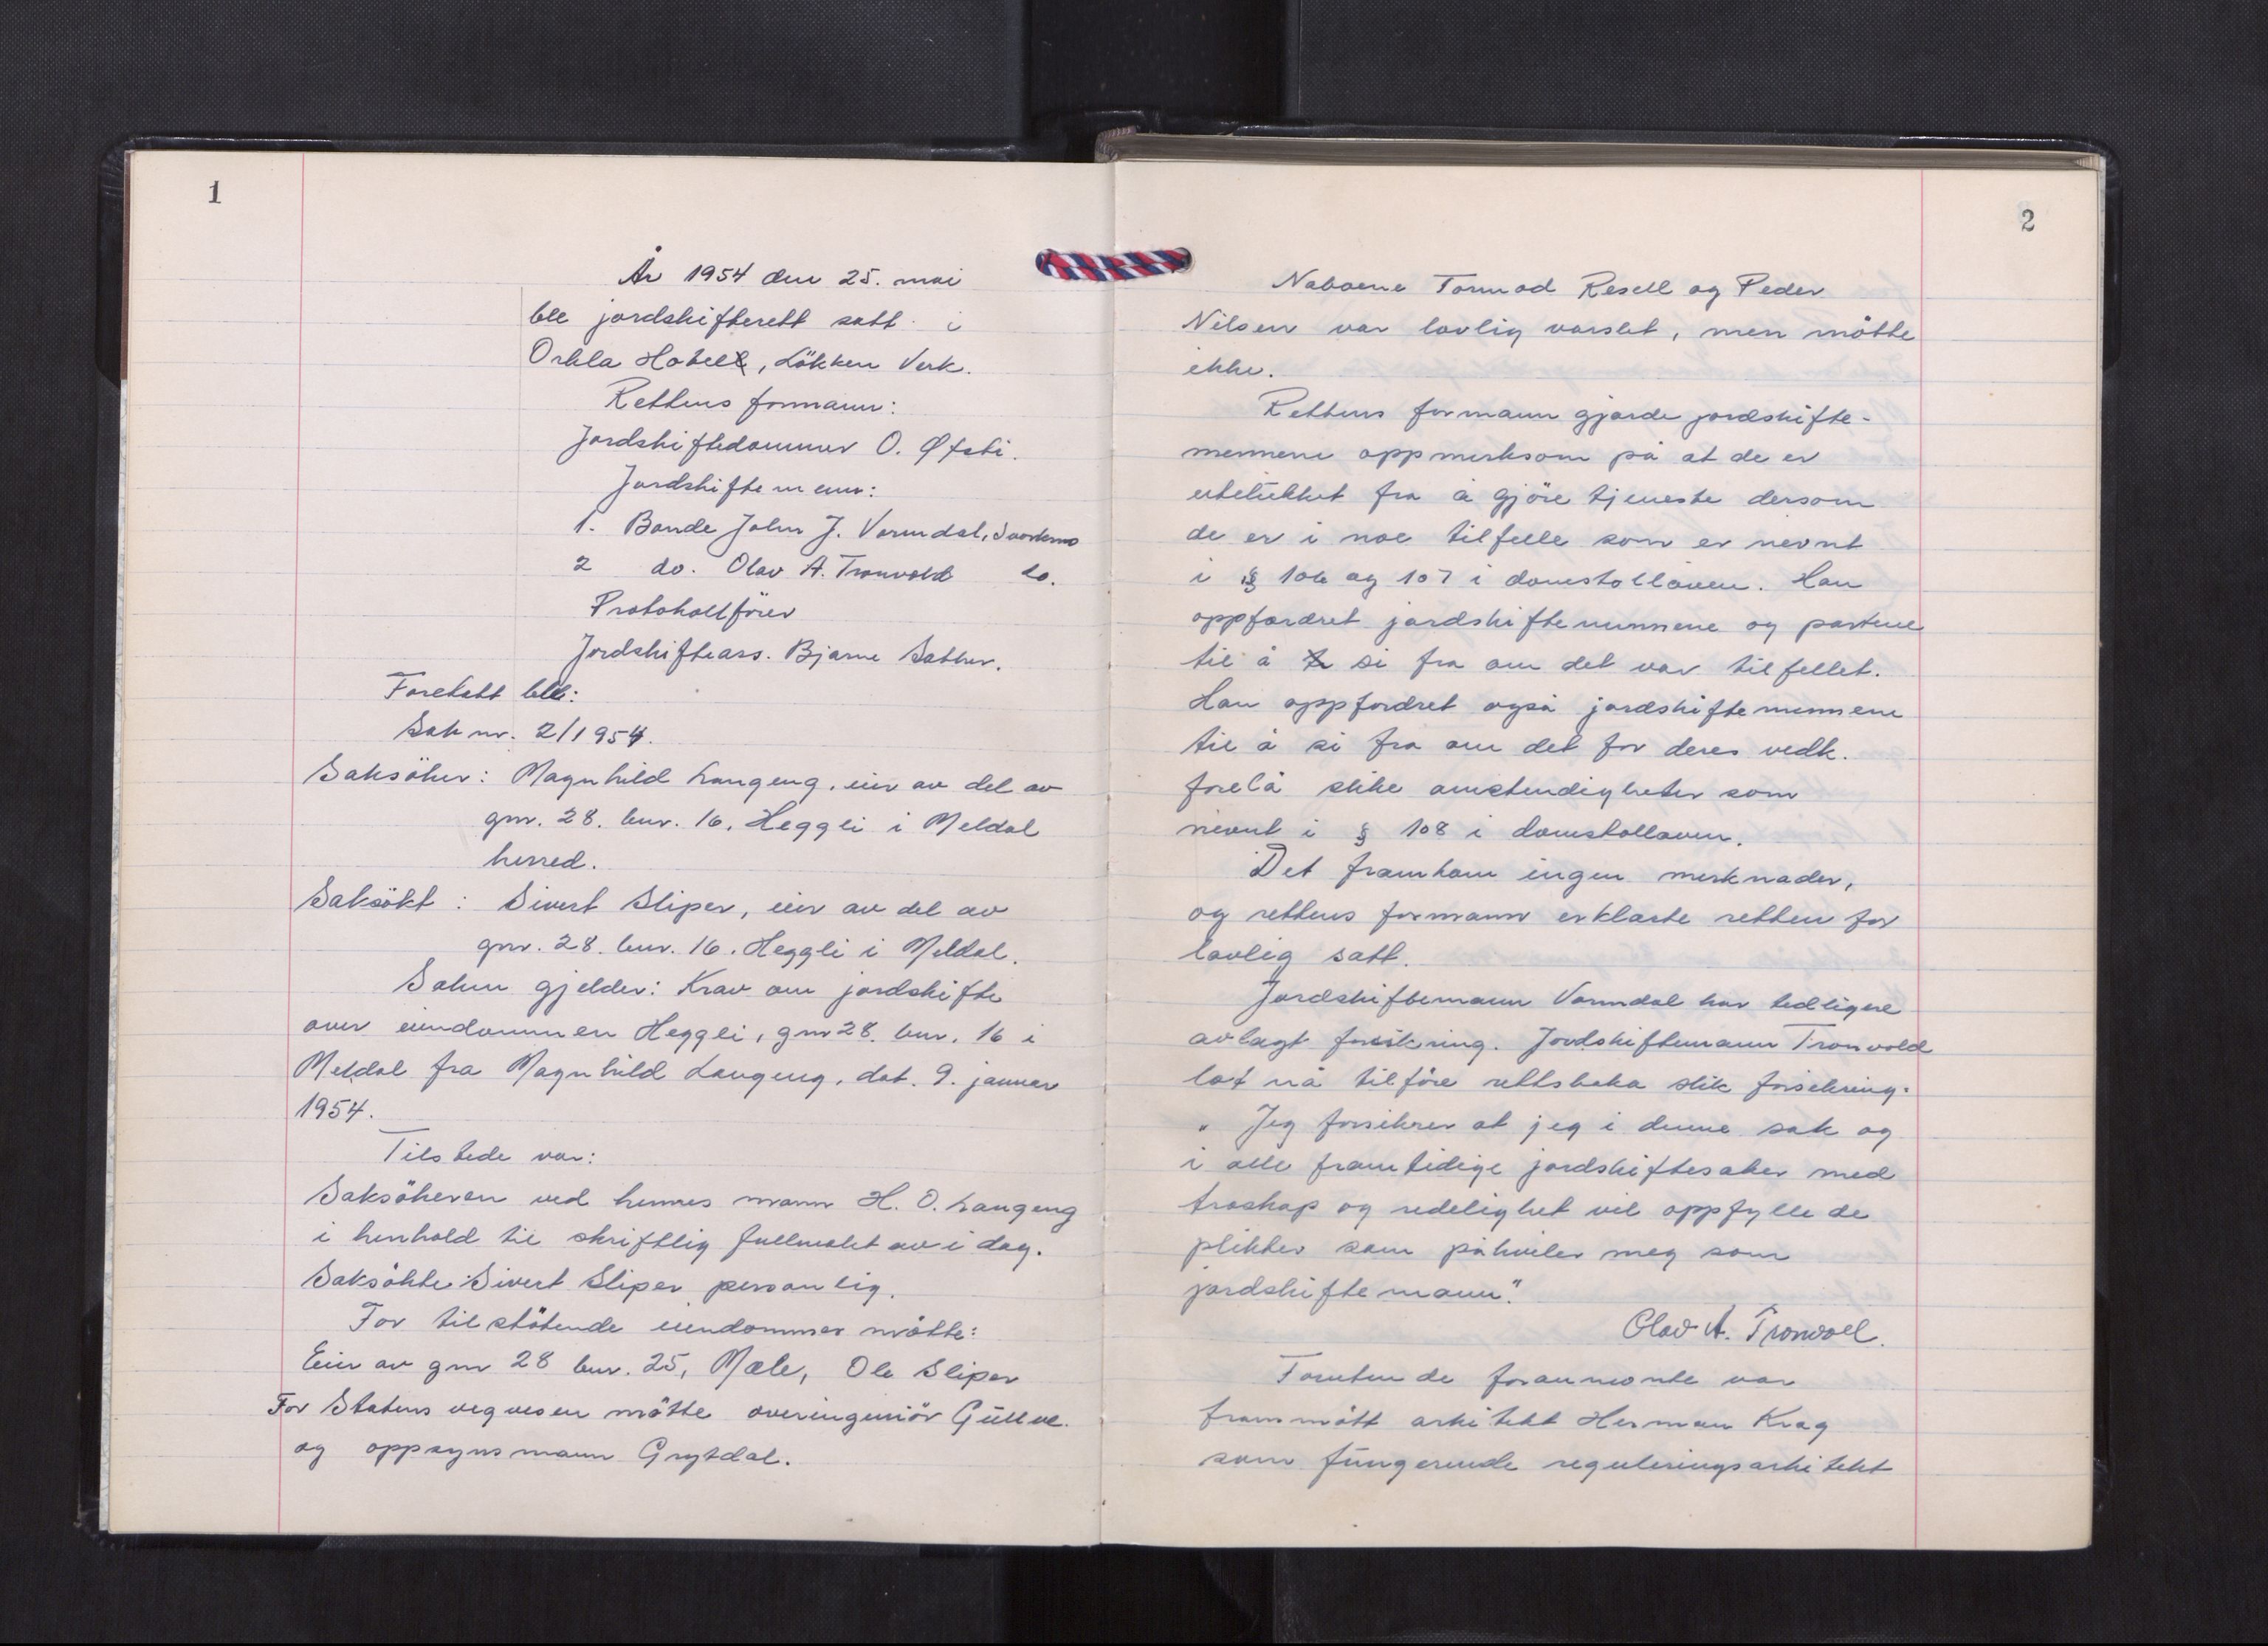 1
År 1954 den 25. mai
ble jordskifterett satt i
Orkla Hotell, Løkken Verk.
Rettens formann:
Jordskiftedommer O. Øfsti.
Jordskiftemenn:
1. Bonde John J. Vormdal, Svorkmo
2 do. Olav A. Tronvold do.
Protokollfører
Jordskifteass. Bjarne Sæther.
Foretatt ble:
Sak nr. 2/1954.
Saksöker: Magnhild Langeng, eier av del av
gnr. 28. bnr. 16. Heggli i Meldal
herred.
Saksökt: Sivert Sliper, eier av del av
gnr. 28. bnr. 16. Heggli i Meldal.
Saken gjelder: Krav om jordskifte
over eiendommen Heggli, gnr 28. bnr. 16 i
Meldal fra Magnhild Langeng, dat. 9. januar
1954.
Tilstede var:
Saksökeren ved hennes mann H. O. Langeng
i henhold til skriftlig fullmakt av i dag.
Saksökte: Sivert Sliper personlig.
For tilstötende eiendommer mötte:
Eier av gnr 28 bnr. 25, Mæle, Ole Sliper
For Statens vegvesen mötte overingeniör
og oppsynsmann Grytdal.
2
Naboene Tormod Resell og Peder
Nilsen var lovlig varslet, men mötte
ikke.
Rettens formann gjorde jordskifte-
mennene oppmerksom på at de er
utelukket fra å gjöre tjeneste dersom
de er i noe tilfelle som er nevnt
i § 106 og 107 i domstolloven. Han
oppfordret jordskiftemennene og partene
til å si fra om det var tilfellet.
Han oppfordret også jordskiftemennene
til å si fra om det for deres vedk.
forelå slike omstendigheter som
nevnt i § 108 i domstolloven.
Det framkom ingen merknader,
og rettens formann erklærte retten for
lovlig satt.
Jordskiftemann Vormdal har tidligere
avlagt forsikring. Jordskiftemann Tronvold
lot nå tilföre rettsboka slik forsikring:
"Jeg forsikrer at jeg i denne sak og
i alle framtidige jordskiftesaker med
troskap og redelighet vil oppfylle de
plikter som påhviler meg som
jordskiftemann".
Olav A. Tronvoll.
Foruten de forannevnte var
frammött arkitekt Herman Krag
som fungerende reguleringsarkitekt